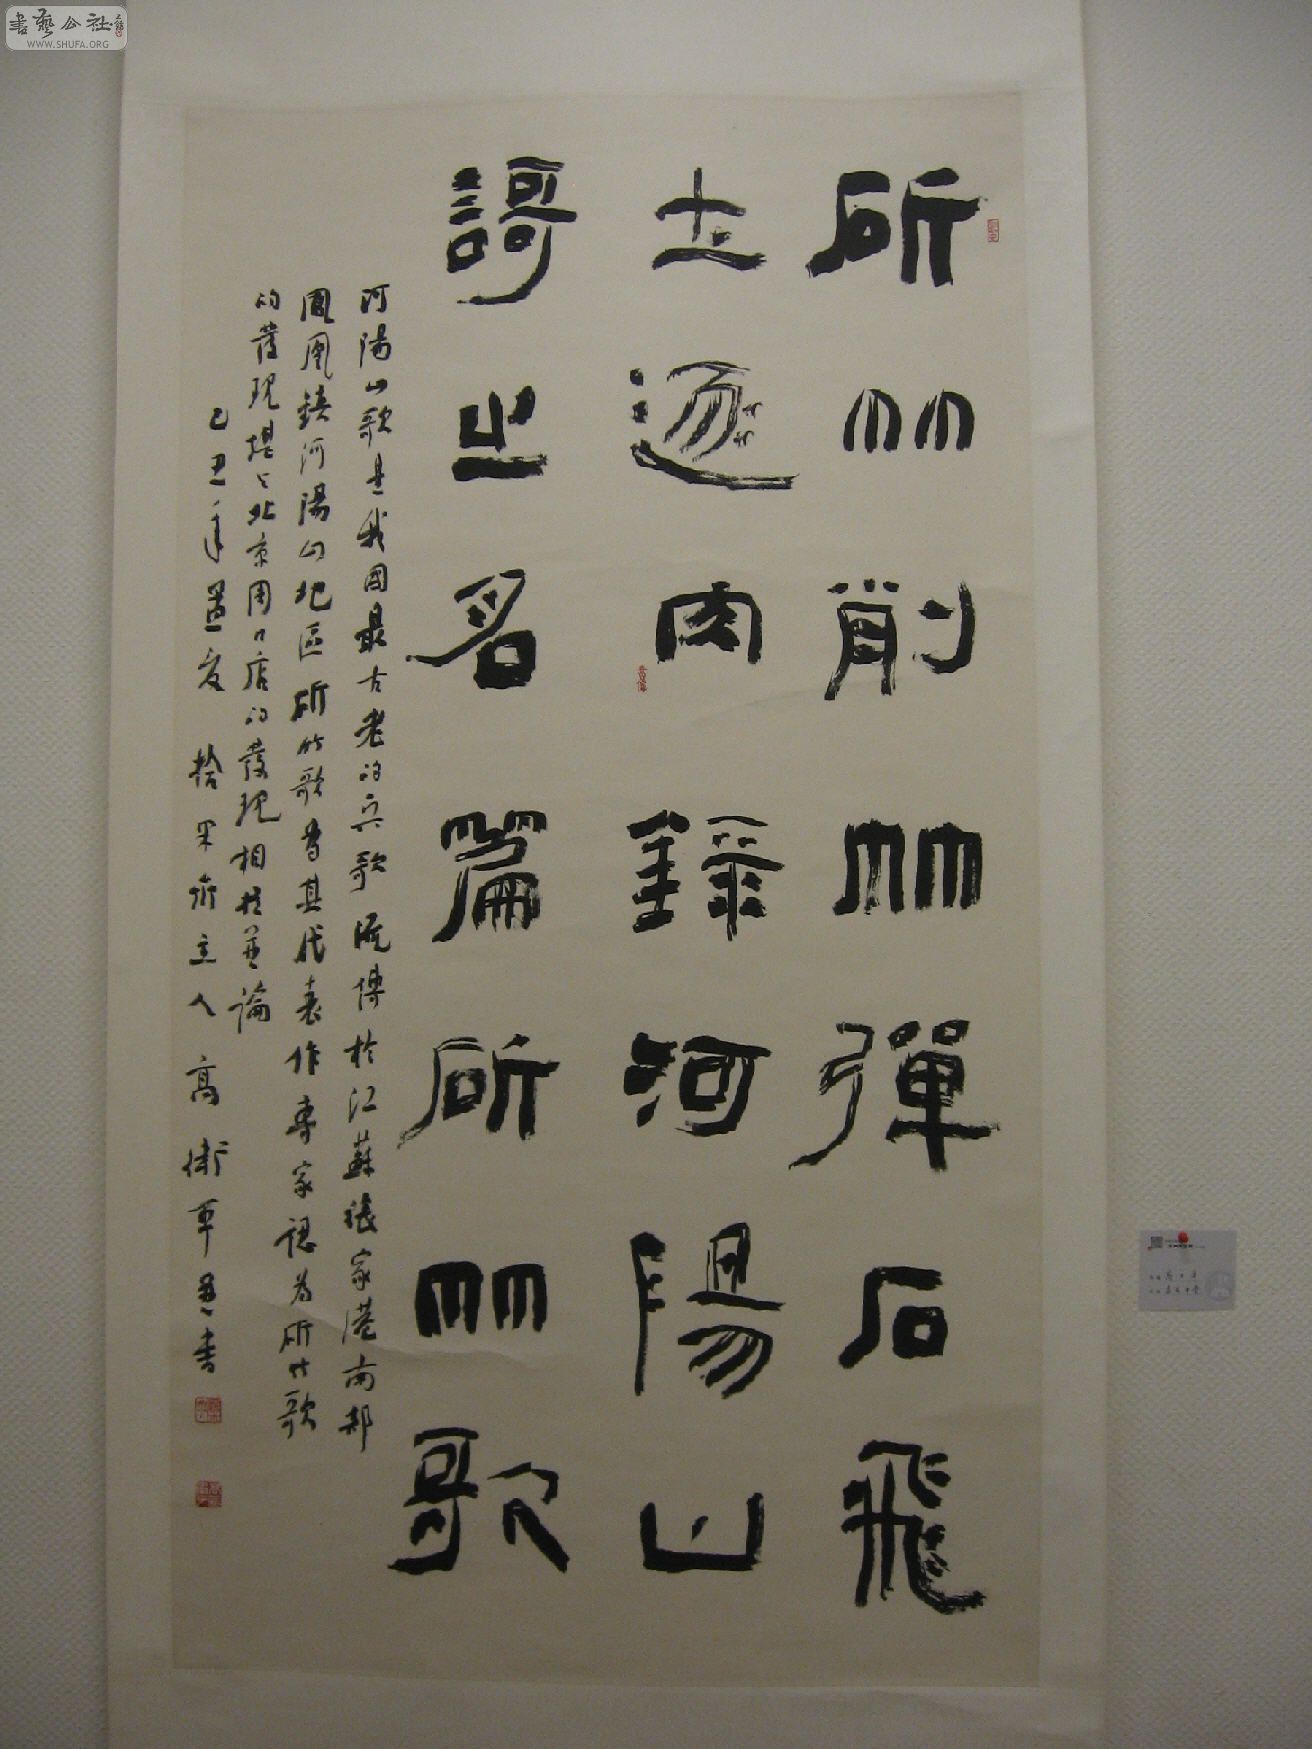 斫竹削竹彈石飛
土逐肉錄河陽山
謌之名篇斫竹歌
河陽山歌是我國最古老的山歌流傳於江蘇張家港南部
鳳凰鎮河陽山地區斫竹歌為其代表作專家認為斫竹歌
的發現堪與北京周口店的發現相提並論
己丑年夏 拾 齋主人 高衛軍 書
書藝公社
WWW.SHUFA.ORG